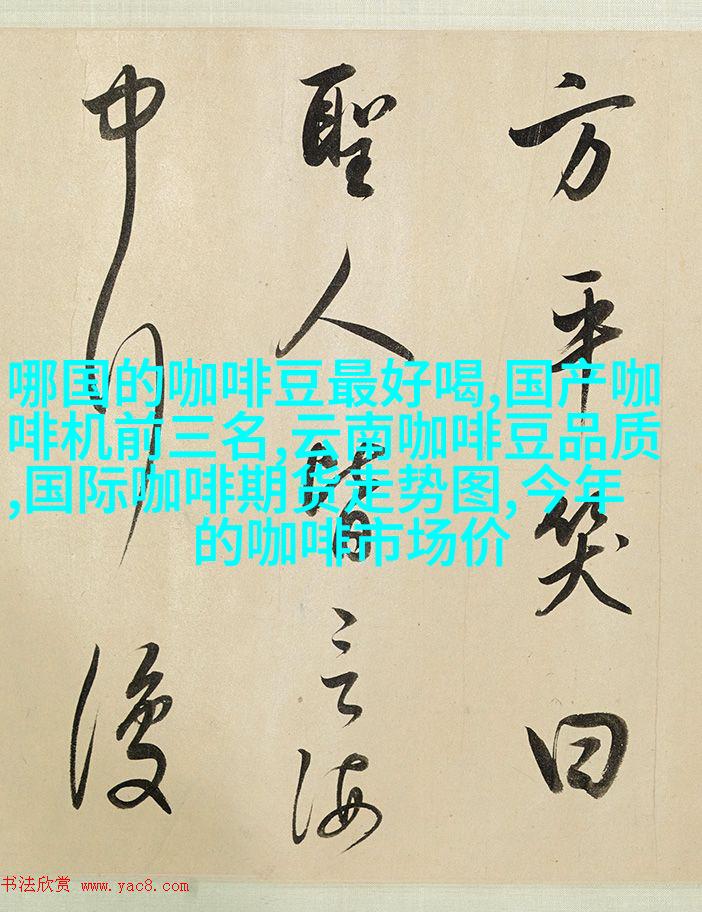 方平笑曰
聖人皆言海
中行復
哪国的咖啡豆最好喝,国产咖
啡机前三名,云南咖啡豆品质
,国际咖啡期货走势图,今年
的咖啡市场价
书法欣赏 www.yac8.com